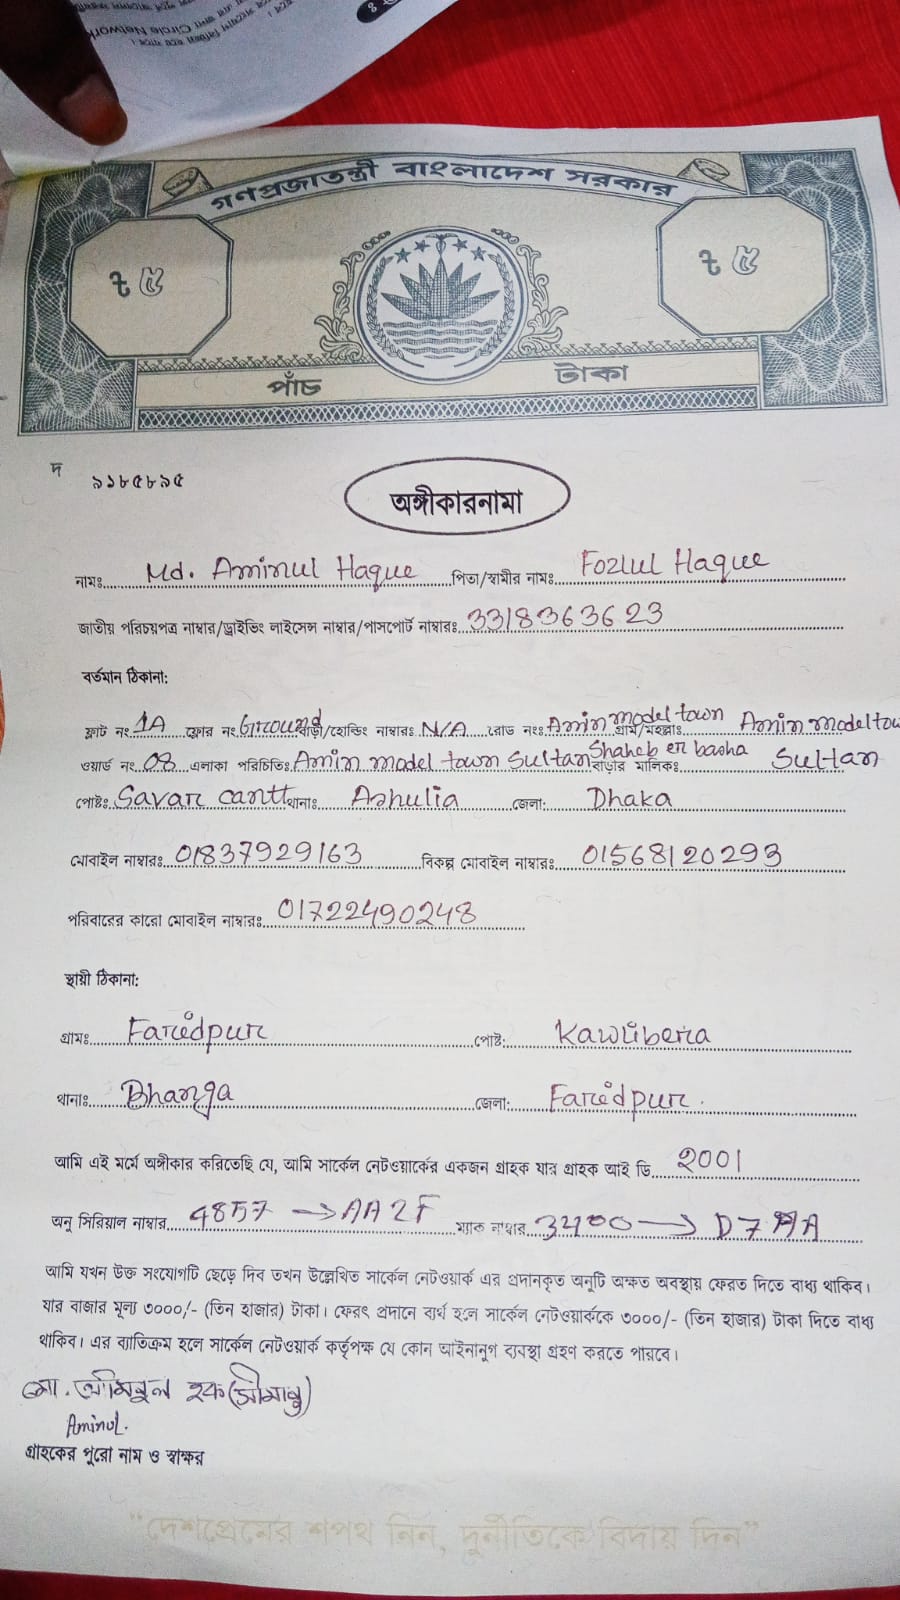 Circle Network
গণপ্রজাতন্ত্রী বাংলাদেশ সরকার
৳ ৫ ৳ ৫
পাঁচ টাকা
দ ৯১৮৫৮৯৫
অঙ্গীকারনামা
নামঃ Md. Aminul Haque পিতা/স্বামীর নামঃ Fozlul Haque
জাতীয় পরিচয়পত্র নাম্বার/ড্রাইভিং লাইসেন্স নাম্বার/পাসপোর্ট নাম্বারঃ 3318363623
বর্তমান ঠিকানা:
ফ্লাট নং 1A ফ্লোর নং Ground বাড়ী/হোল্ডিং নাম্বারঃ N/A রোড নংঃ Amin model town গ্রাম/মহল্লাঃ Amin model tow
ওয়ার্ড নং 08 এলাকা পরিচিতিঃ Amin model town Sultan Shaheb er basha বাড়ীর মালিকঃ Sultan
পোষ্টঃ Savar cantt থানাঃ Ashulia জেলা: Dhaka
মোবাইল নাম্বারঃ 01837929163 বিকল্প মোবাইল নাম্বারঃ 01568120293
পরিবারের কারো মোবাইল নাম্বারঃ 01722490248
স্থায়ী ঠিকানা:
গ্রামঃ Faridpur পোষ্ট: Kawlibera
থানাঃ Bhanga জেলা: Faridpur.
আমি এই মর্মে অঙ্গীকার করিতেছি যে, আমি সার্কেল নেটওয়ার্কের একজন গ্রাহক যার গ্রাহক আই ডি 2001
অনু সিরিয়াল নাম্বার 4857 → AA2F ম্যাক নাম্বার 3400 → D7AA
আমি যখন উক্ত সংযোগটি ছেড়ে দিব তখন উল্লেখিত সার্কেল নেটওয়ার্ক এর প্রদানকৃত অনুটি অক্ষত অবস্থায় ফেরত দিতে বাধ্য থাকিব।
যার বাজার মূল্য ৩০০০/- (তিন হাজার) টাকা। ফেরৎ প্রদানে ব্যর্থ হলে সার্কেল নেটওয়ার্ককে ৩০০০/- (তিন হাজার) টাকা দিতে বাধ্য
থাকিব। এর ব্যাতিক্রম হলে সার্কেল নেটওয়ার্ক কর্তৃপক্ষ যে কোন আইনানুগ ব্যবস্থা গ্রহণ করতে পারবে।
মো. আমিনুল হক
Aminul.
গ্রাহকের পুরো নাম ও স্বাক্ষর
“দেশপ্রেমের শপথ নিন, দুর্নীতিকে বিদায় দিন”